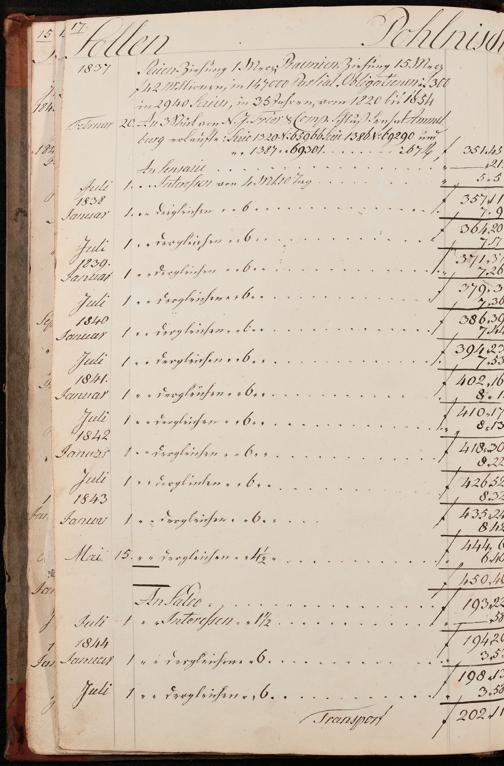 15 17.
Sollen Pohlnisch
1837 Serien Ziehung 1 Merz, Praemien Ziehung 15. Merz
f 42 Millionen, in 147000 Partial Obligationen 300
in 2940 Serien, in 35 Jahren, vom 1820 bis 1854
Februar 20. An 3 Stück von N. J. &Comp
burg verkaufte Serie 1320 N. 65966, bis 1386 N. 69290 und
1387 69301 267¼ f 351.45
An Sensarie .21
Juli 1. Interessen von 4 Mt. 10 Tag 5.5
f 357.11
1838
Januar 1 dergleichen 6 7.9
f 364.20
Juli 1 dergleichen 6 7.17
f 371.37
1839.
Januar 1 dergleichen 6 7.26
f 379.3
Juli 1 dergleichen 6 7.36
f 386.39
1840
Januar 1 dergleichen 6 7.44
f 394.23
Juli 1 dergleichen 6 7.53
f 402.16
1841.
Januar 1 dergleichen 6 8.1
f 410.17
Juli 1 dergleichen 6 8.13
1842
f 418.30
Januar 1 dergleichen 6 8.22
f 426.52
Juli 1 dergleichen 6 8.32
1843
f 435.24
Januar 1 dergleichen 6 8.42
f 444.6
Mai 15. dergleichen 4½ 6.40
f 450.46
An Saldo f 193.22
Juli 1 Interessen 1½ .58
f 194.20
1844
Januar 1 dergleichen 6. 3.53
f 198.13
Juli 1 dergleichen 6. 3.58
Transport f 202.11